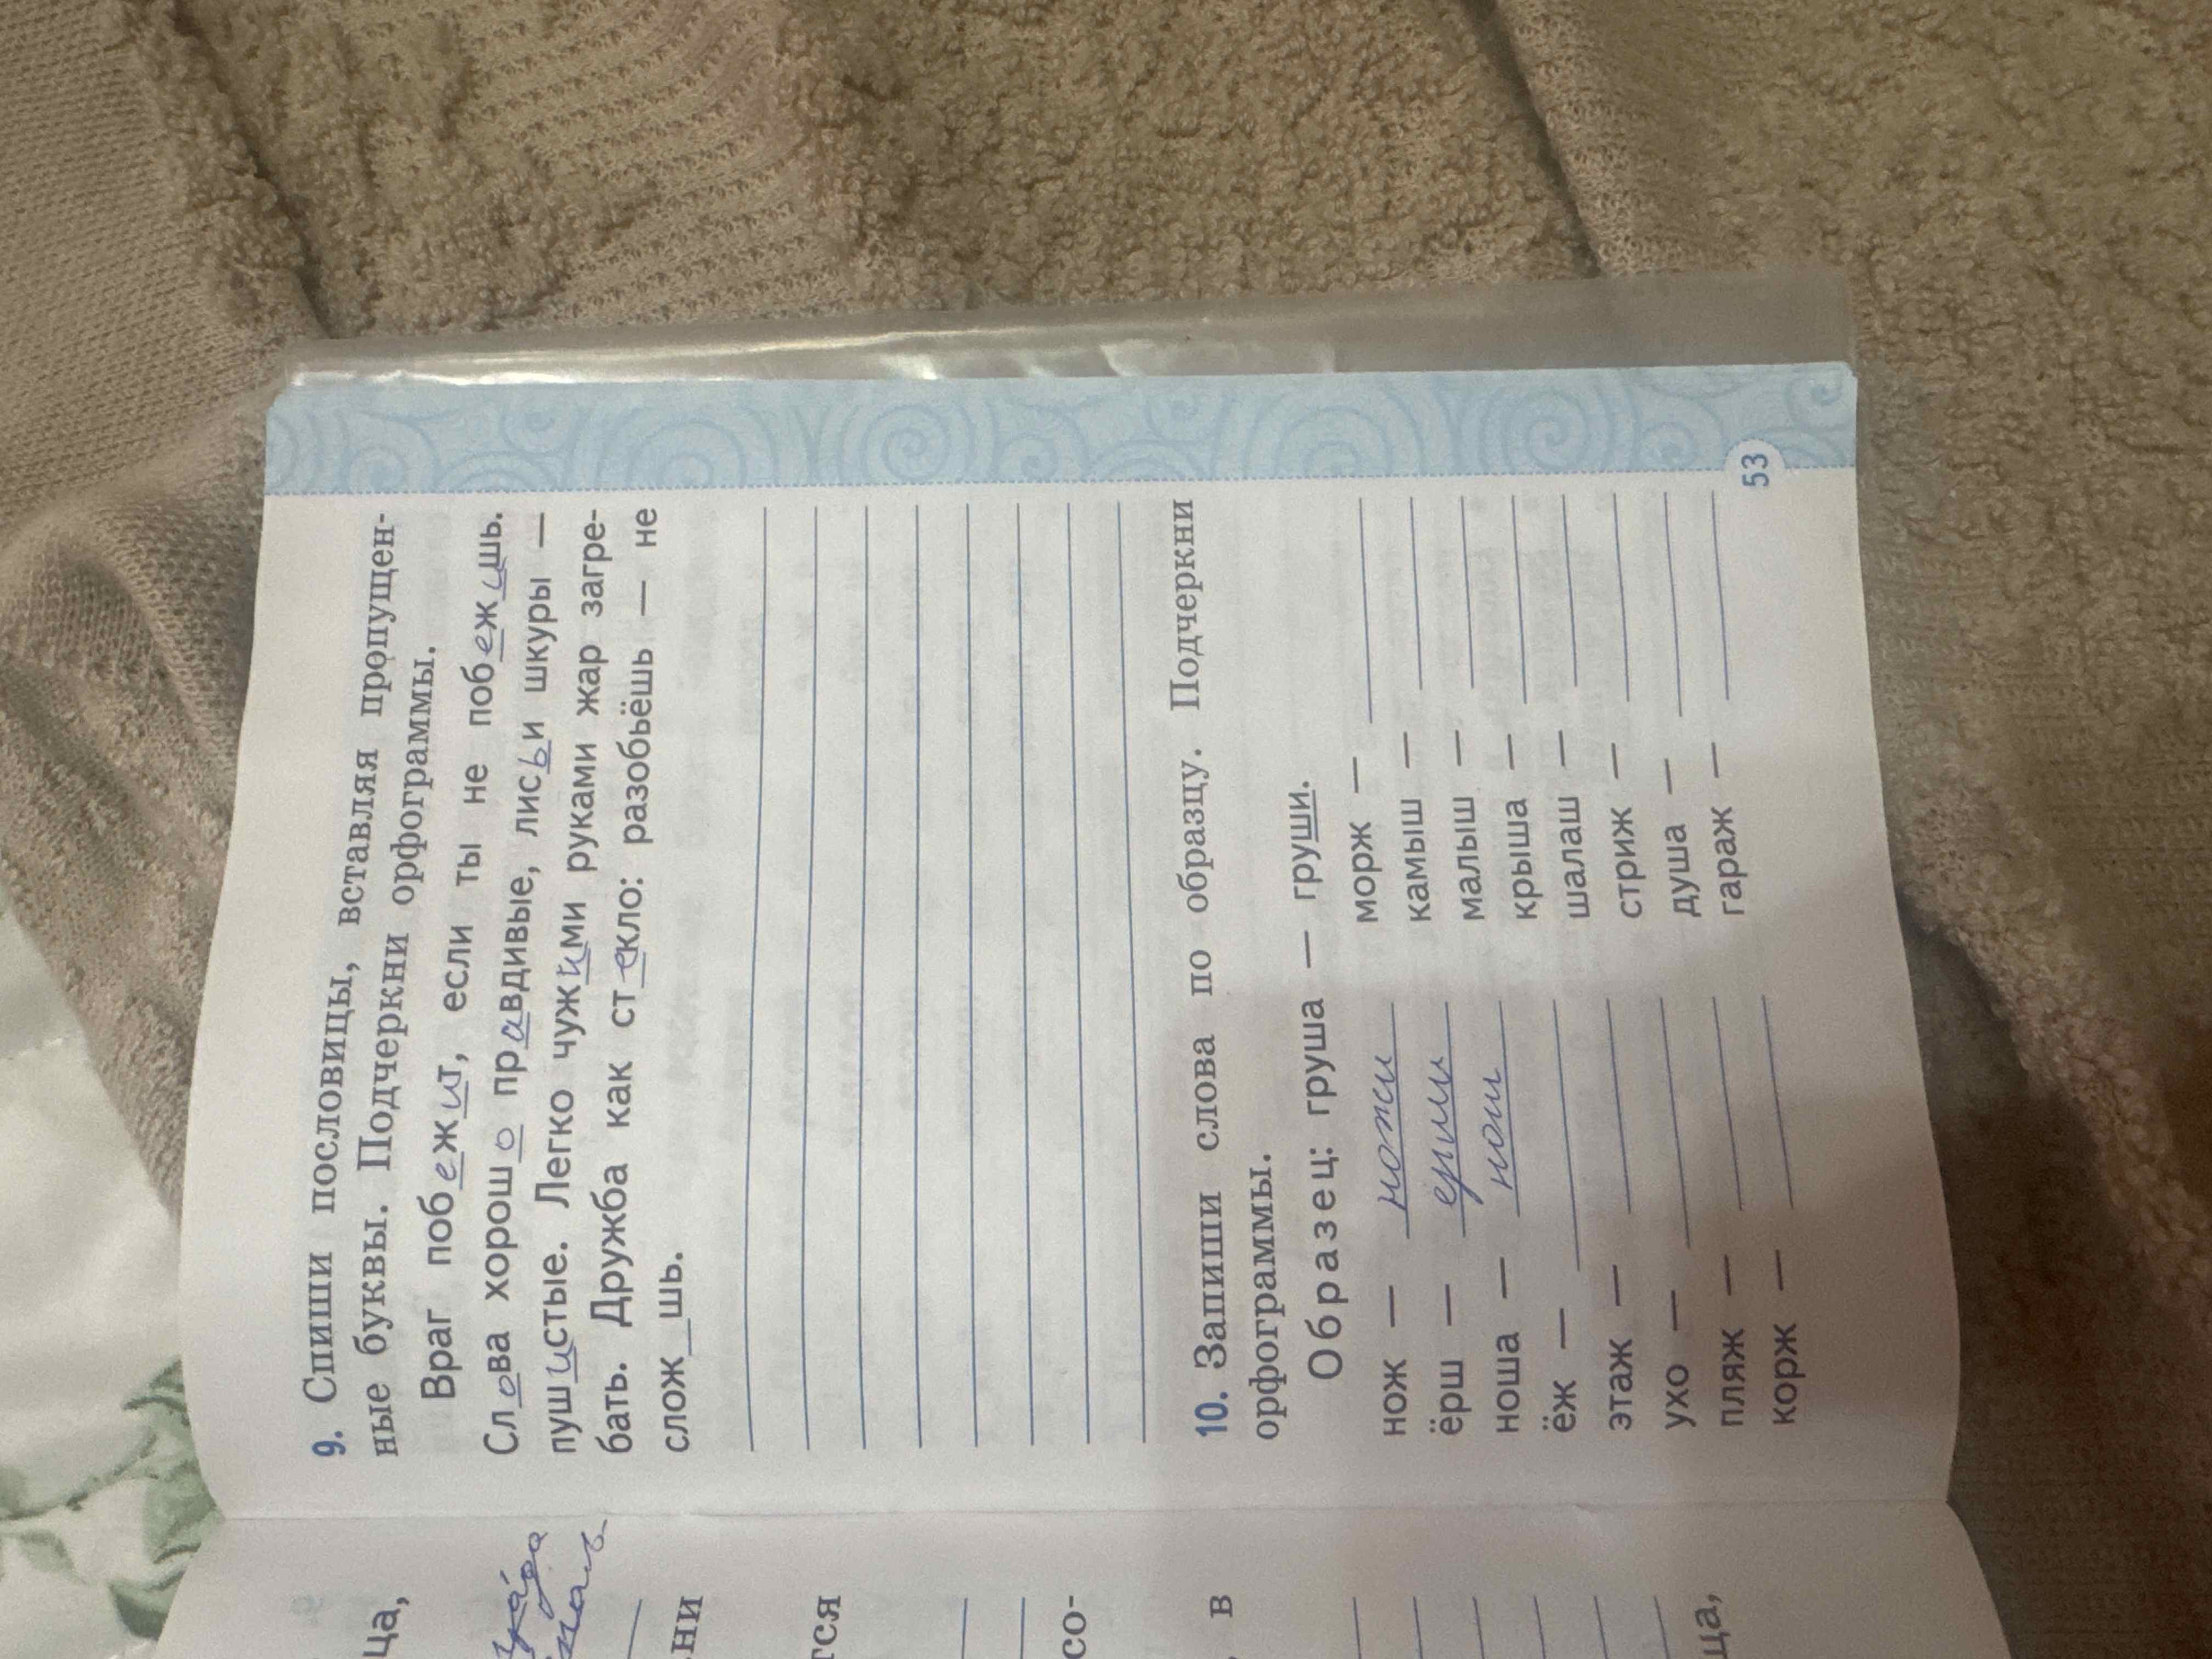 9. Спиши пословицы, вставляя пропущен-
ные буквы. Подчеркни орфограммы.
Враг побежит, если ты не побежишь.
Слова хорошо правдивые, лисьи шкуры —
пушистые. Легко чужими руками жар загре-
бать. Дружба как стекло: разобьёшь — не
слож_шь.
10. Запиши слова по образцу. Подчеркни
орфограммы.
Образец: груша — груши.
нож — ножи
ёрш — ерши
ноша — нош
ёж —
этаж —
ухо —
пляж —
корж —
морж —
камыш —
малыш —
крыша —
шалаш —
стриж —
душа —
гараж —
53
ца,
ни
тся
со-
в
ца,